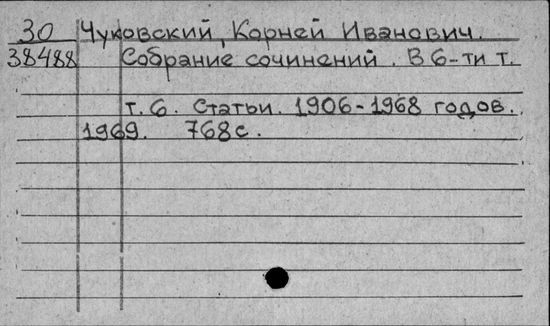 30 Чуковский, Корней Иванович.
38488 Собрание сочинений. В 6-ти т.
т. 6. Статьи. 1906-1968 годов.
1969. 768с.